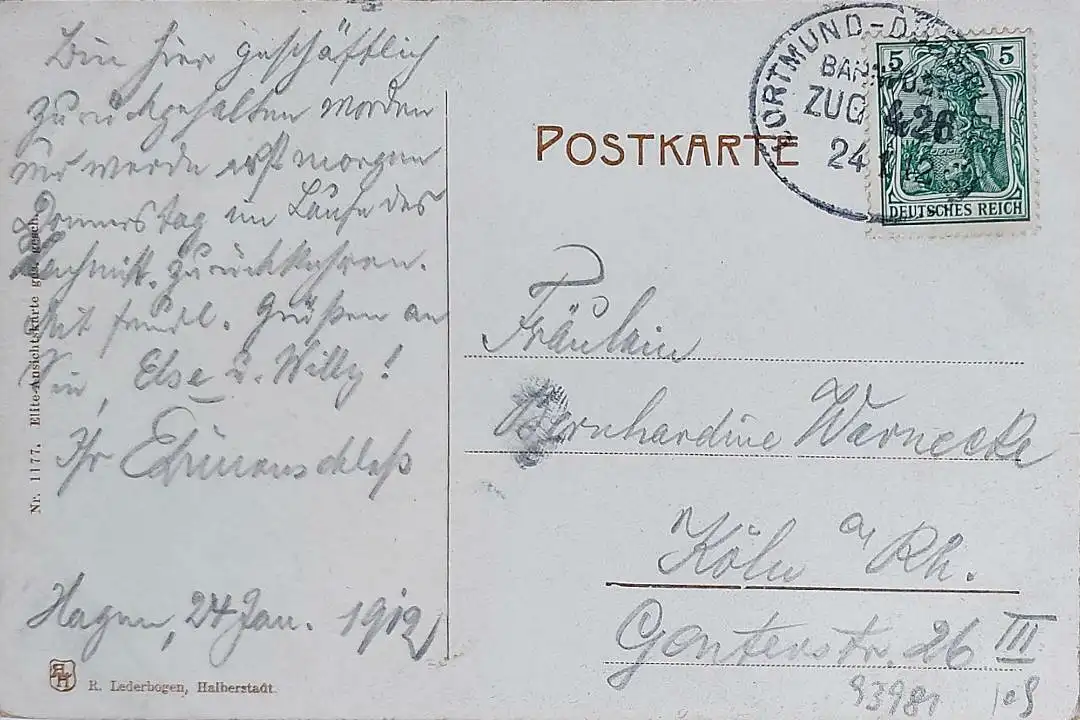 Bin hier geschäftlich
zurückgehalten worden
und werde erst morgen
Donnerstag im Laufe des
Nachmitt. zurückkehren.
Mit freundl. Grüßen an
Sie, Else u. Willy!
Ihr
Hagen, 24 Jan. 1912
Nr. 1177. Elite-Ansichtskarte ges. gesch.
R. Lederbogen, Halberstadt.
POSTKARTE
DORTMUND-
ZUG 426
24 1 12
5 5
DEUTSCHES REICH
Fräulein
Bernhardine Warnecke
Köln a Rh.
Genterstr. 26 III
93981